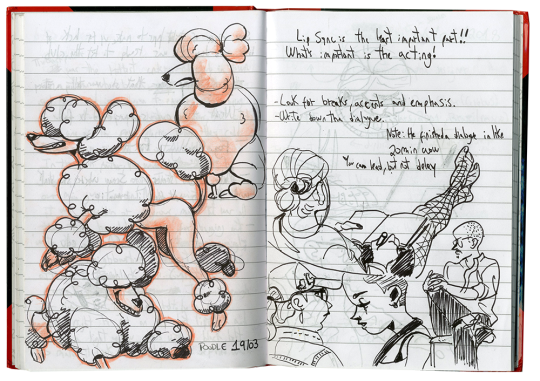 POODLE 19/03
Lip Sync is the least important part!!
What's important is the acting!
- Look for breaks, accents and emphasis.
- Write down the dialogue.
Note: He finished a dialogue in like
20min wow
You can lead, but not delay